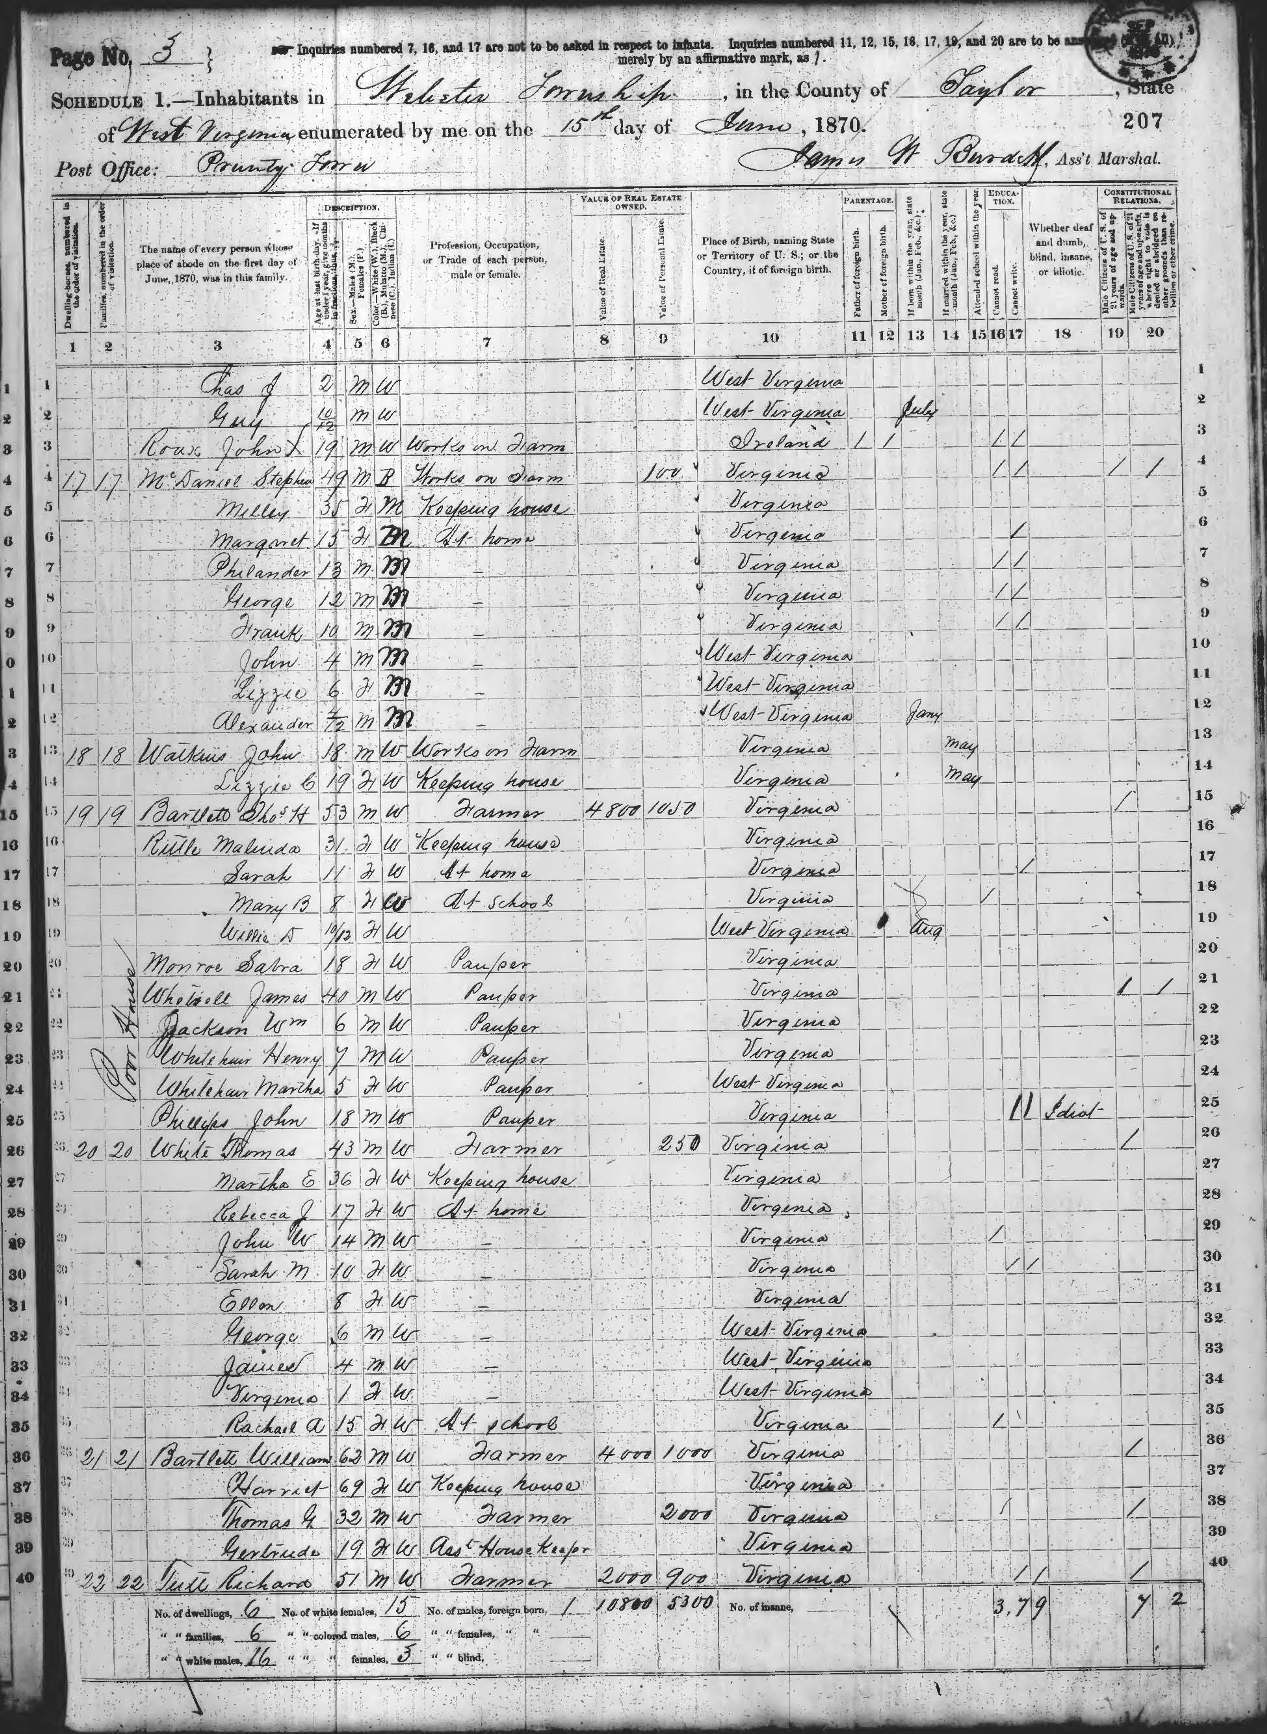 Page No. 3 } Inquiries numbered 7, 16, and 17 are not to be asked in respect to infants. Inquiries numbered 11, 12, 15, 16, 17, 19, and 20 are to be answered
merely by an affirmative mark, as /.
SCHEDULE 1.—Inhabitants in Webster Township, in the County of Taylor, State
of West Virginia enumerated by me on the 15th day of June, 1870. 207
Post Office: Pruntytown James W Burdett, Ass't Marshal.
DESCRIPTION. VALUE OF REAL ESTATE OWNED. PARENTAGE. EDUCATION. CONSTITUTIONAL RELATIONS.
Dwelling-houses, numbered in the order of visitation.
Families, numbered in the order of visitation.
The name of every person whose place of abode on the first day of June, 1870, was in this family.
Age at last birth-day. If under 1 year, give months in fractions, thus, 3/12
Sex.—Males (M.), Females (F.)
Color.—White (W.), Black (B.), Mulatto (M.), Chinese (C.), Indian (I.)
Profession, Occupation, or Trade of each person, male or female.
Value of Real Estate.
Value of Personal Estate.
Place of Birth, naming State or Territory of U. S.; or the Country, if of foreign birth.
Father of foreign birth.
Mother of foreign birth.
If born within the year, state month (Jan., Feb., &c.)
If married within the year, state month (Jan., Feb., &c.)
Attended school within the year.
Cannot read.
Cannot write.
Whether deaf and dumb, blind, insane, or idiotic.
Male Citizens of U. S. of 21 years of age and upwards.
Male Citizens of U. S. of 21 years of age and upwards, where right to vote is denied or abridged on other grounds than rebellion or other crime.
1 2 3 4 5 6 7 8 9 10 11 12 13 14 15 16 17 18 19 20
1 1 Chas J 2 M W West Virginia 1
2 2 Guy 10/12 M W West Virginia July 2
3 3 Roux John 19 M W Works on Farm Ireland / / / / 3
4 4 17 17 McDaniel Stephen 49 M B Works on Farm 100 Virginia / / / / 4
5 5 Milley 35 F M Keeping house Virginia 5
6 6 Margaret 15 F M At home Virginia / 6
7 7 Philander 13 M M — Virginia / / 7
8 8 George 12 M M — Virginia / / 8
9 9 Frank 10 M M — Virginia / / 9
0 10 John 4 M M — West Virginia 10
1 11 Lizzie 6 F M — West Virginia 11
2 12 Alexander M M — West Virginia Jany 12
3 13 18 18 Watkins John 18 M W Works on Farm Virginia May 13
4 14 Lizzie C 19 F W Keeping house Virginia May 14
15 15 19 19 Bartlett Thos H 53 M W Farmer 4800 1050 Virginia / 15
16 16 Malinda 31 F W Keeping house Virginia 16
17 17 Sarah 11 F W At home Virginia / 17
18 18 Mary B 8 F W At School Virginia / 18
19 19 Willie D 10/12 F W West Virginia Aug 19
Poor House
20 20 Monroe Sabra 18 F W Pauper Virginia 20
21 21 James 40 M W Pauper Virginia / / 21
22 22 Jackson Wm 6 M W Pauper Virginia 22
23 23 Whitehair Henry 7 M W Pauper Virginia 23
24 24 Whitehair Martha 5 F W Pauper West Virginia 24
25 25 Phillips John 18 M W Pauper Virginia / / Idiot 25
26 26 20 20 White Thomas 43 M W Farmer 250 Virginia / 26
27 27 Martha E 36 F W Keeping house Virginia 27
28 28 Rebecca J 17 F W At home Virginia 28
29 29 John W 14 M W — Virginia / 29
30 30 Sarah M 10 F W — Virginia / / 30
31 31 Ellen 8 F W — Virginia 31
32 32 George 6 M W — West Virginia 32
33 33 James 4 M W — West Virginia 33
34 34 Virginia 1 F W — West Virginia 34
35 35 Rachael A 15 F W At school Virginia / 35
36 36 21 21 Bartlett William 62 M W Farmer 4000 1000 Virginia / 36
37 37 Harriet 69 F W Keeping house Virginia 37
38 38 Thomas G 32 M W Farmer 2000 Virginia / / 38
39 39 Gertrude 19 F W Asst House Keeper Virginia 39
40 40 22 22 Tutt Richard 51 M W Farmer 2000 900 Virginia / / / 40
No. of dwellings, 6 No. of white females, 15 No. of males, foreign born, 1 10800 5300 No. of insane, 3 7 9 7 2
" " families, 6 " " colored males, 6 " " females, " "
" " white males, 16 " " " females, 3 " " blind,